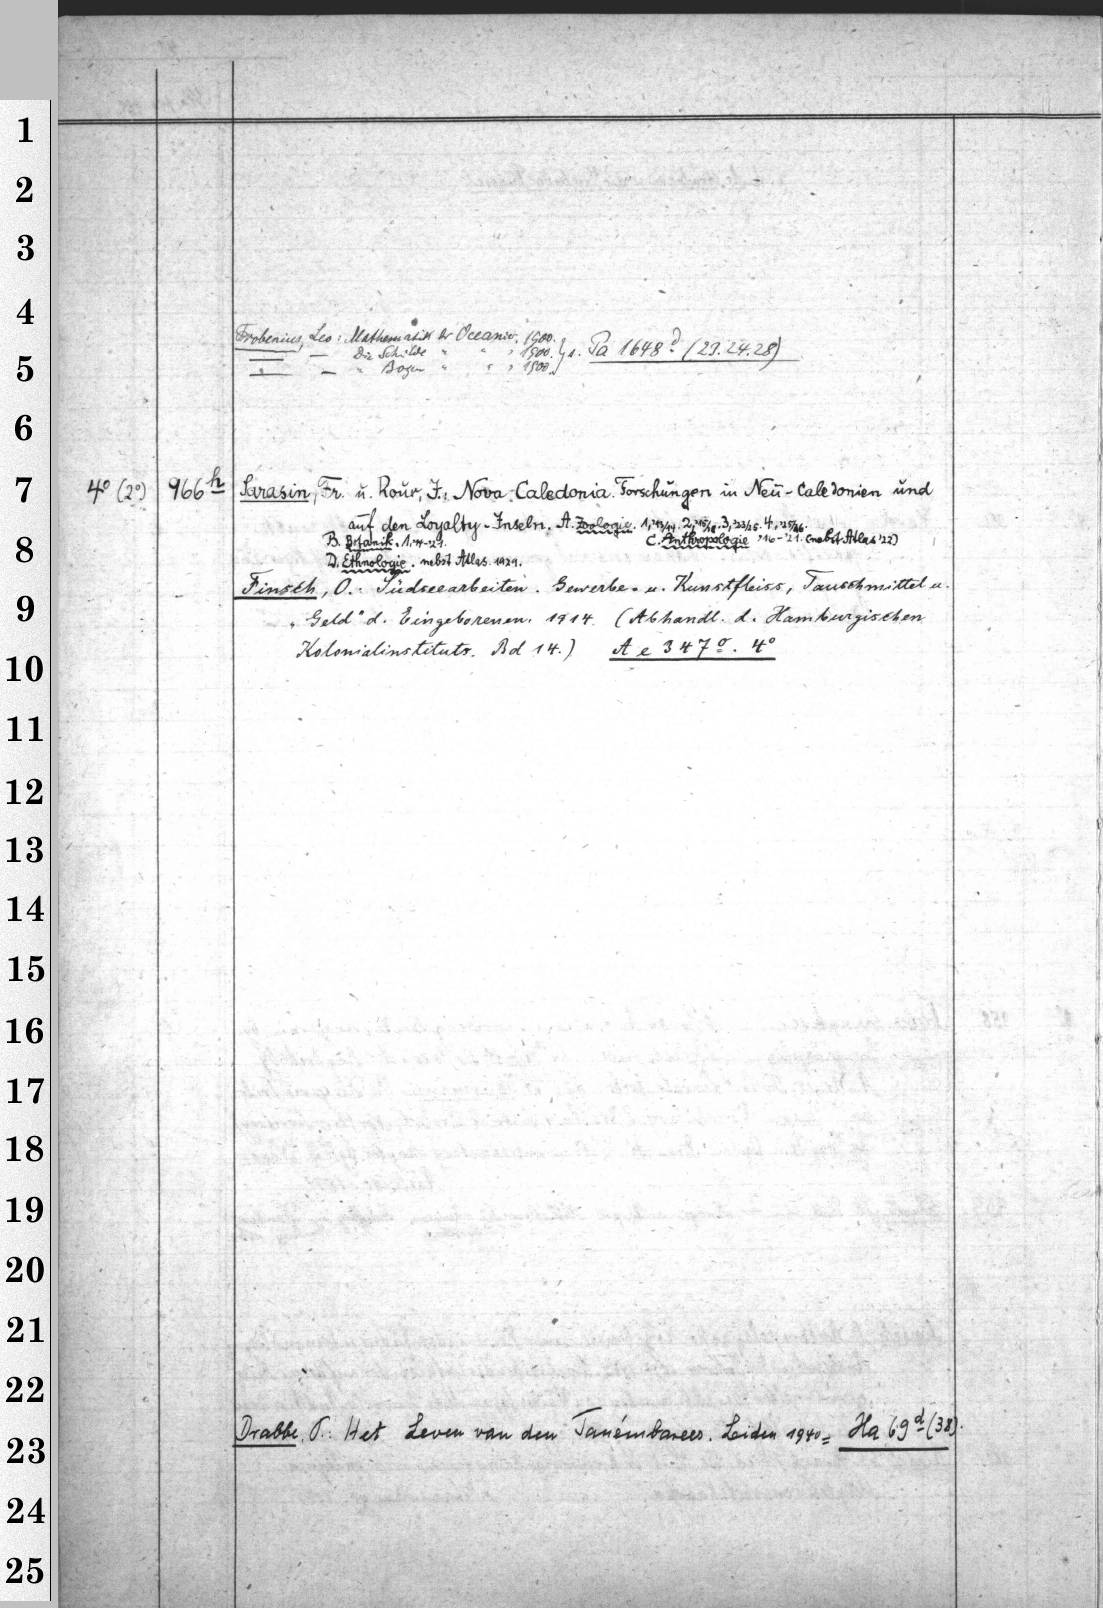 1
2
3
4
Frobenius, Leo: Mathematik der Oceanier, 1900.
5
— — Die Schilde " " , 1900. } s. Pa 1648 d (23.24.28)
" — " Bogen " " , 1900.
6
7
4° (2°) 966 h Sarasin, Fr. u. Roux, J.: Nova Caledonia. Forschungen in Neu-Caledonien und
auf den Loyalty-Inseln. A. Zoologie. 1,'13/14. 2,'15/18. 3,'23/25. 4,'25/26.
8
B. Botanik. 1,'14-'21. C. Anthropologie '16-'21. (nebst Atlas '22)
D. Ethnologie. nebst Atlas. 1929.
Finsch, O.: Südseearbeiten. Gewerbe- u. Kunstfleiss, Tauschmittel u.
9
„Geld" d. Eingeborenen. 1914. (Abhandl. d. Hamburgischen
Kolonialinstituts. Bd 14.) A e 347 g. 4°
10
11
12
13
14
15
16
17
18
19
20
21
22
Drabbe, P.: Het Leven van den Tanémbarees. Leiden 1940 = Ha 69 d (38).
23
24
25